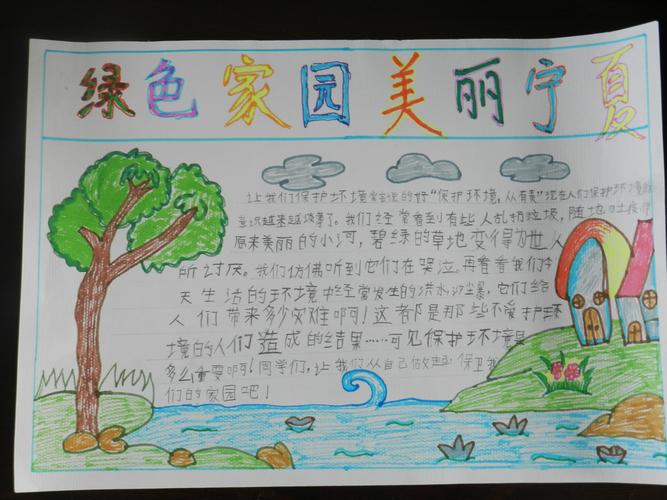 绿色家园美丽宁夏
让我们保护坏境常言说的好"保护环境,从有责"现在人们保护环境
意识越来越淡薄了。我们经常看到有些人乱扔垃圾,随地吐痰
原来美丽的小河,碧绿的草地变得为世人
所讨厌。我们仿佛听到它们在哭泣。再看看我们今
天生活的环境中经常发生的洪水沙尘暴,它们给
人们带来多少灾难啊!这都是那些不爱护环
境的人们造成的结果……可见保护环境是
多么重要啊!同学们,让我们从自己做起保卫我
们的家园吧!